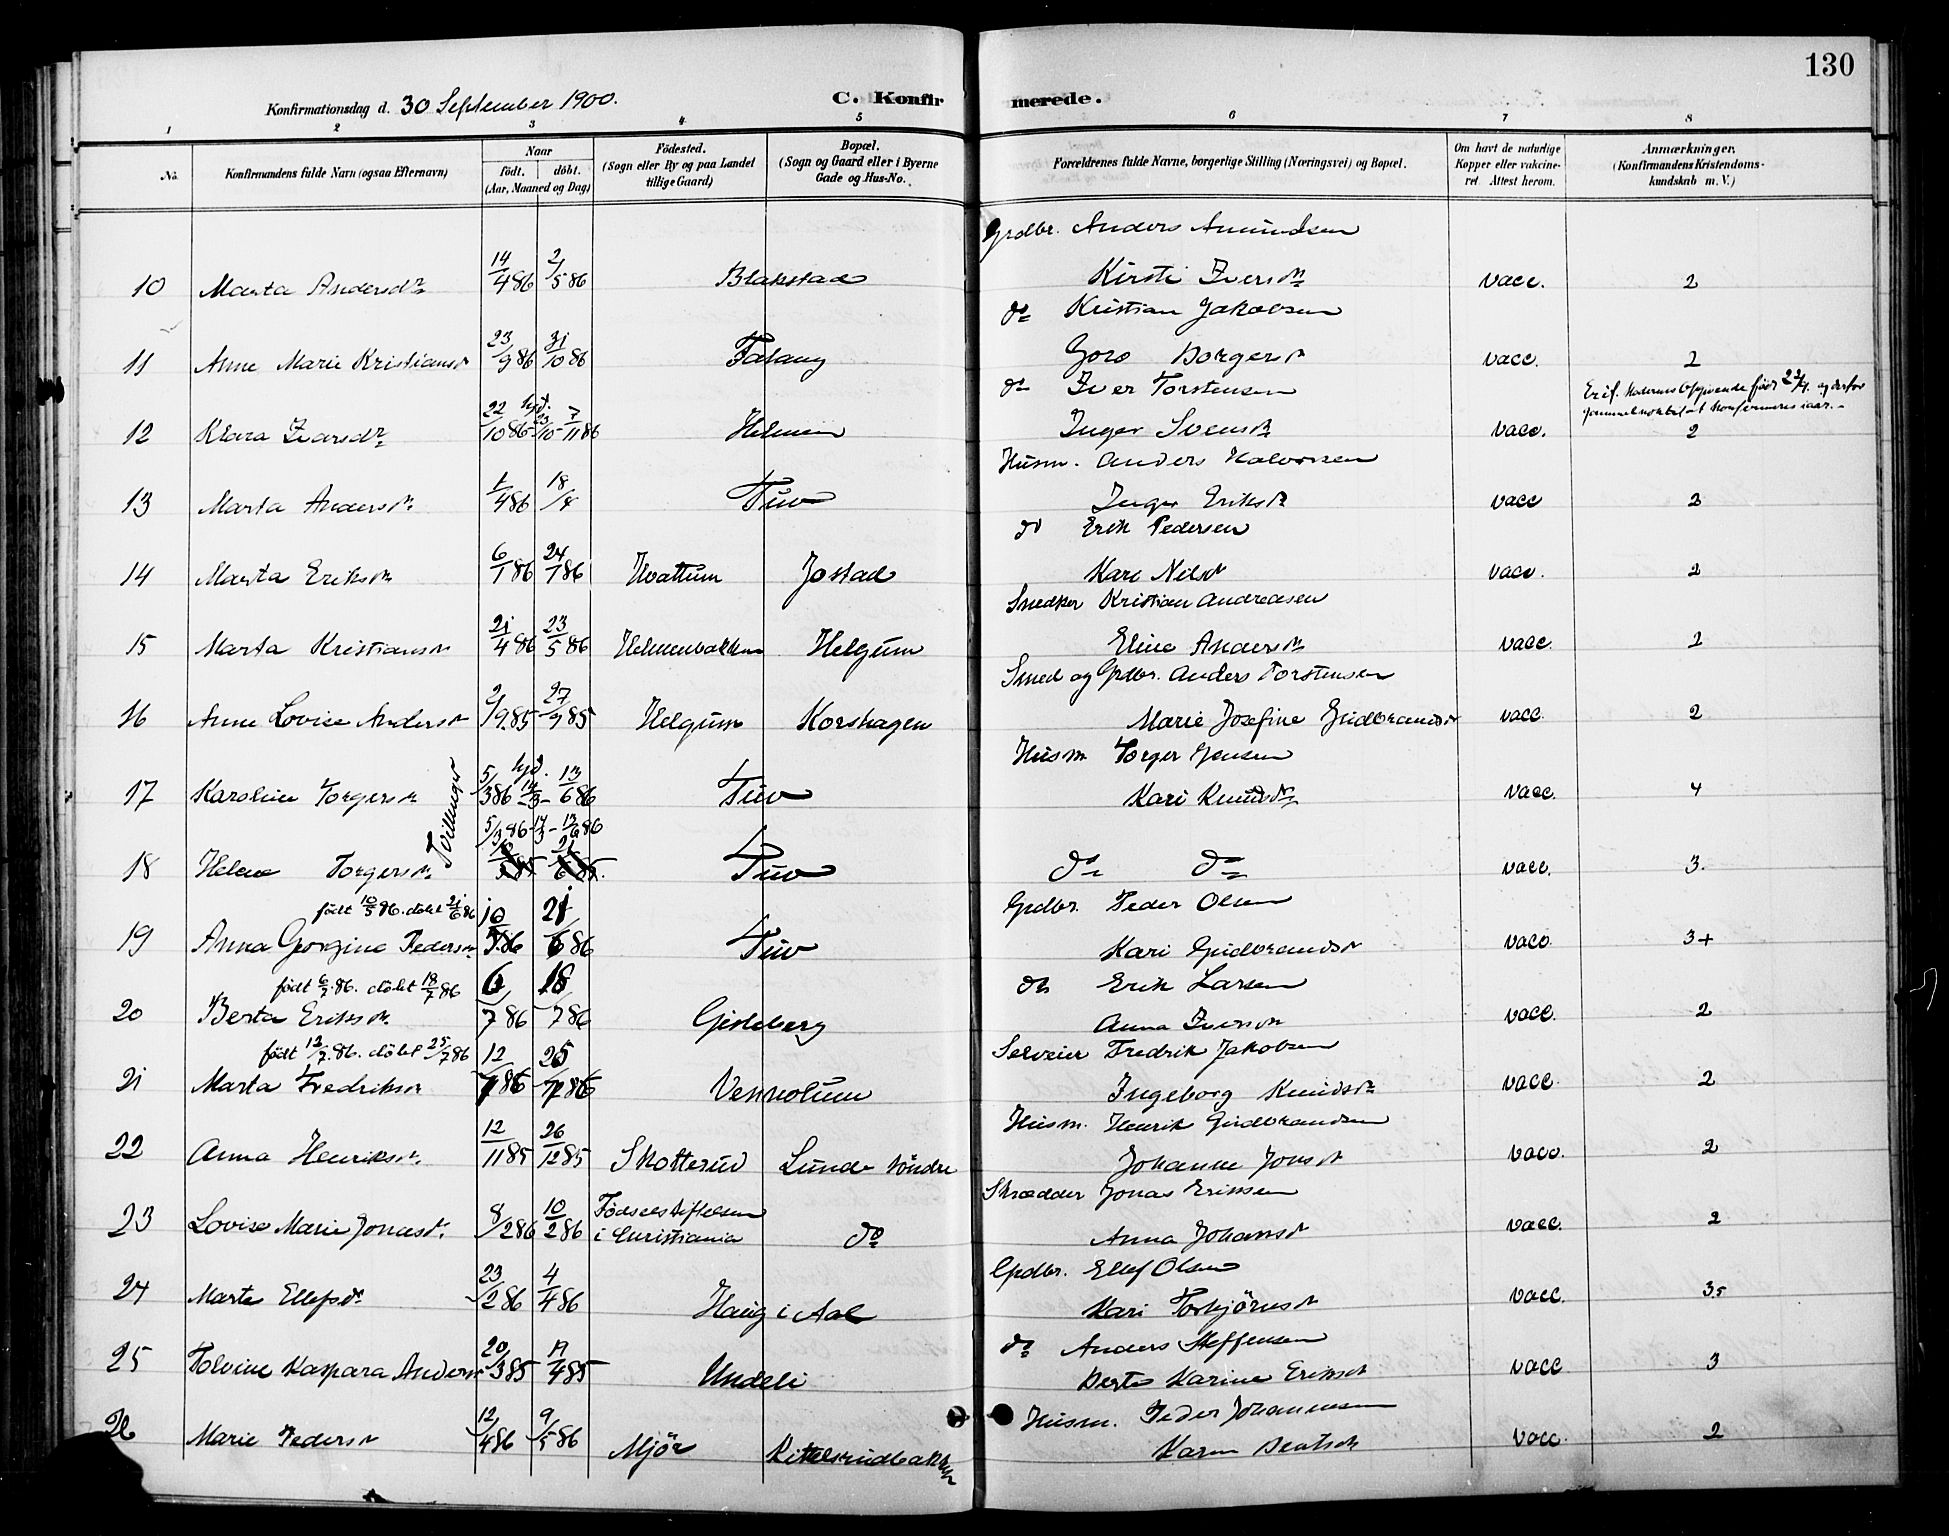 130
Konfirmationsdag d. 30 September 1900. C. Konfirmerede.
1 2 3 4 5 6 7 8
No. Konfirmandens fulde Navn (ogsaa Efternavn) Naar født. døbt. (Aar, Maaned og Dag) Fødested. (Sogn eller By og paa Landet tillige Gaard) Bopæl. (Sogn og Gaard eller i Byerne Gade og Hus-No. Forældrenes fulde Navne, borgerlige Stilling (Næringsvei) og Bopæl. Om havt de naturlige Kopper eller vakcineret. Attest herom. Anmærkninger, (Konfirmandens Kristendomskundskab m. V.)
Grdbr. Anders Amundsen
10 Marta Andersdr 14/4 86 2/5 86 Blakstad Kirsti Iversdr vacc. 2
do Kristian Jakobsen
11 Anne Marie Kristiansdr 23/9 86 31/10 86 Goro Borgersdr vacc. 2
do Iver Torstensen
22/10 86 hjd. 23/10 - 7/11 86
12 Klara Ivarsdr Helmen Inger Svensdr vacc. 2
Husm. Anders Halvorsen
13 Marta Andersdr 1/4 86 18/4 Tuv Inger Eriksdr vacc 3
do Erik Pedersen
14 Marta Eriksdr 6/1 86 24/1 86 Hvattum Jostad Kari Nilsdr vacc. 2
Snedker Kristian Andreasen
15 Marta Kristiansdr 21/4 86 23/5 86 Helmenbakken Helgum Eline Andersdr vacc. 2
Smed og Grdbr. Anders Torstensen
16 Anne Lovise Andersdr 2/9 85 27/9 85 Helgum Korshagen Marie Josefine Gudbrandsdr vacc. 2
Husm Torger Jensen
17 Karoline Torgersdr Tvillinger 5/3 86 hjd. 14/3 - 13/6 86 Tuv Kari Knudsdr vacc. 4
5/3 86 - 14/3 - 13/6 86
18 Helene Torgersdr Tuv do do vacc. 3.
født 10/5 86. døbt 21/6 86 Grdbr. Peder Olsen
19 Anna Georgine Pedersdr 10/5 86 21/6 86 Tuv Kari Gudbrandsdr vacc 3+
født 6/7 86. døbt 18/7 86 do Erik Larsen
20 Berta Eriksdr. 6/7 86 18/7 86 Gisleberg Anna Iversdr vacc. 2
født 12/7. 86. døbt 25/7 86 Selveier Fredrik Jakobsen
21 Marta Fredriksdr 12/7 86 25/7 86 Vennolum Ingeborg Knudsdr vacc. 2
Husm. Henrik Gudbrandsen
22 Anna Henriksdr. 12/11 85 26/12 85 Skotterud Lunde søndre Johanne Jonsdr vacc. 2
Skrædder Jonas Eriksen
23 Lovise Marie Jonasdr. 8/2 86 10/2 86 Fødselsstiftelsen i Christiania do Anna Johansdr vacc. 2
Grdbr. Ellef Olsen
24 Marte Ellefsdr 23/2 86 4/4 86 Haug i Aal Kari Torbjörnsdr vacc. 3.5
do Anders Steffensen
25 Tolvine Kaspara Andersdr 20/3 85 17/4 85 Undeli Berte Karine Eriksdr vacc 3
Husm. Peder Johannesen
26 Marie Pedersdr 12/4 86 9/5 86 Mjör Kittelsrudbakken Karen vacc. 2